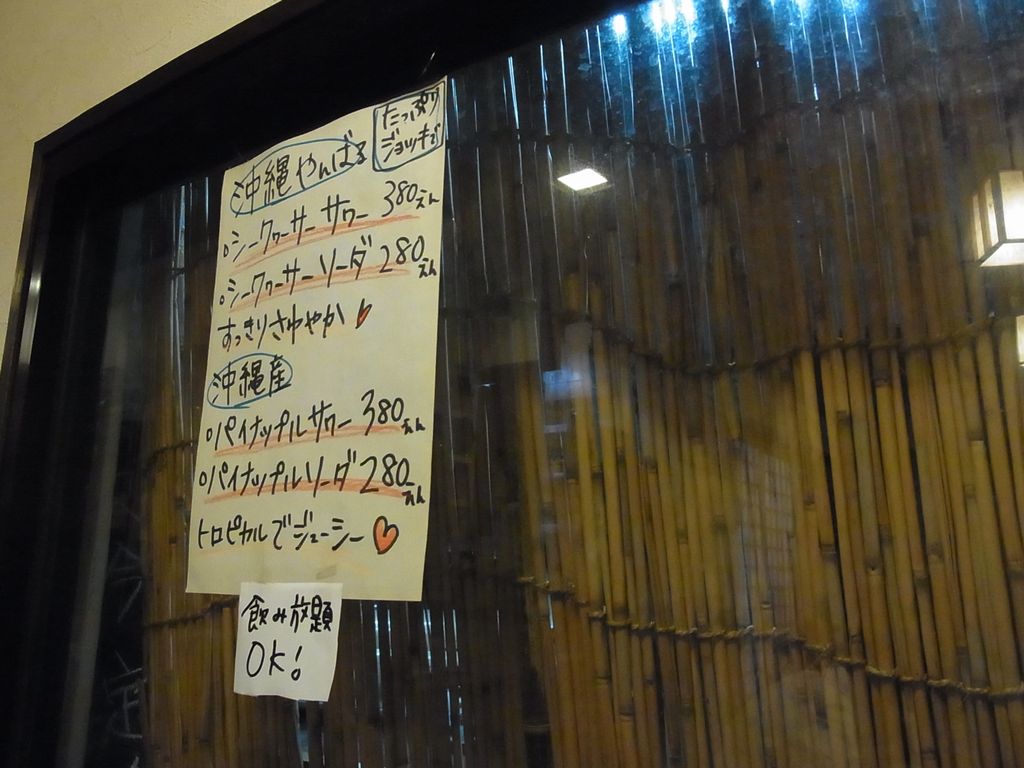 たっぷり
ジョッキで
沖縄やんばる
シークヮーサーサワー 380えん
シークヮーサーソーダ 280えん
すっきりさわやか
沖縄産
パイナップルサワー 380えん
パイナップルソーダ 280えん
トロピカルでジューシー
飲み放題
OK!